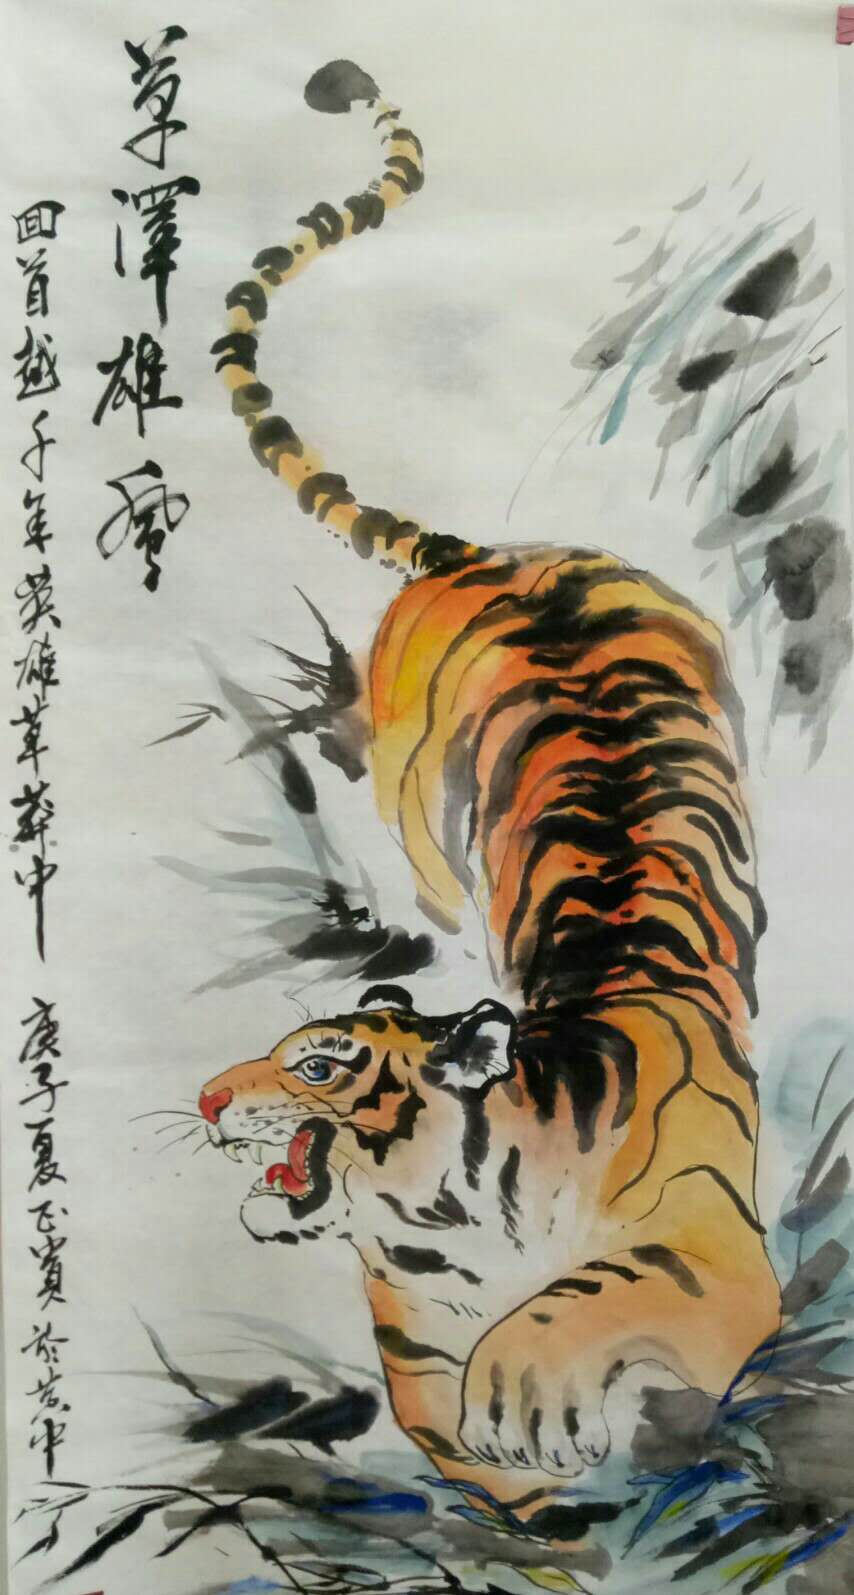 草澤雄風
回首越千年英雄草莽中
庚子夏正賞於黃中